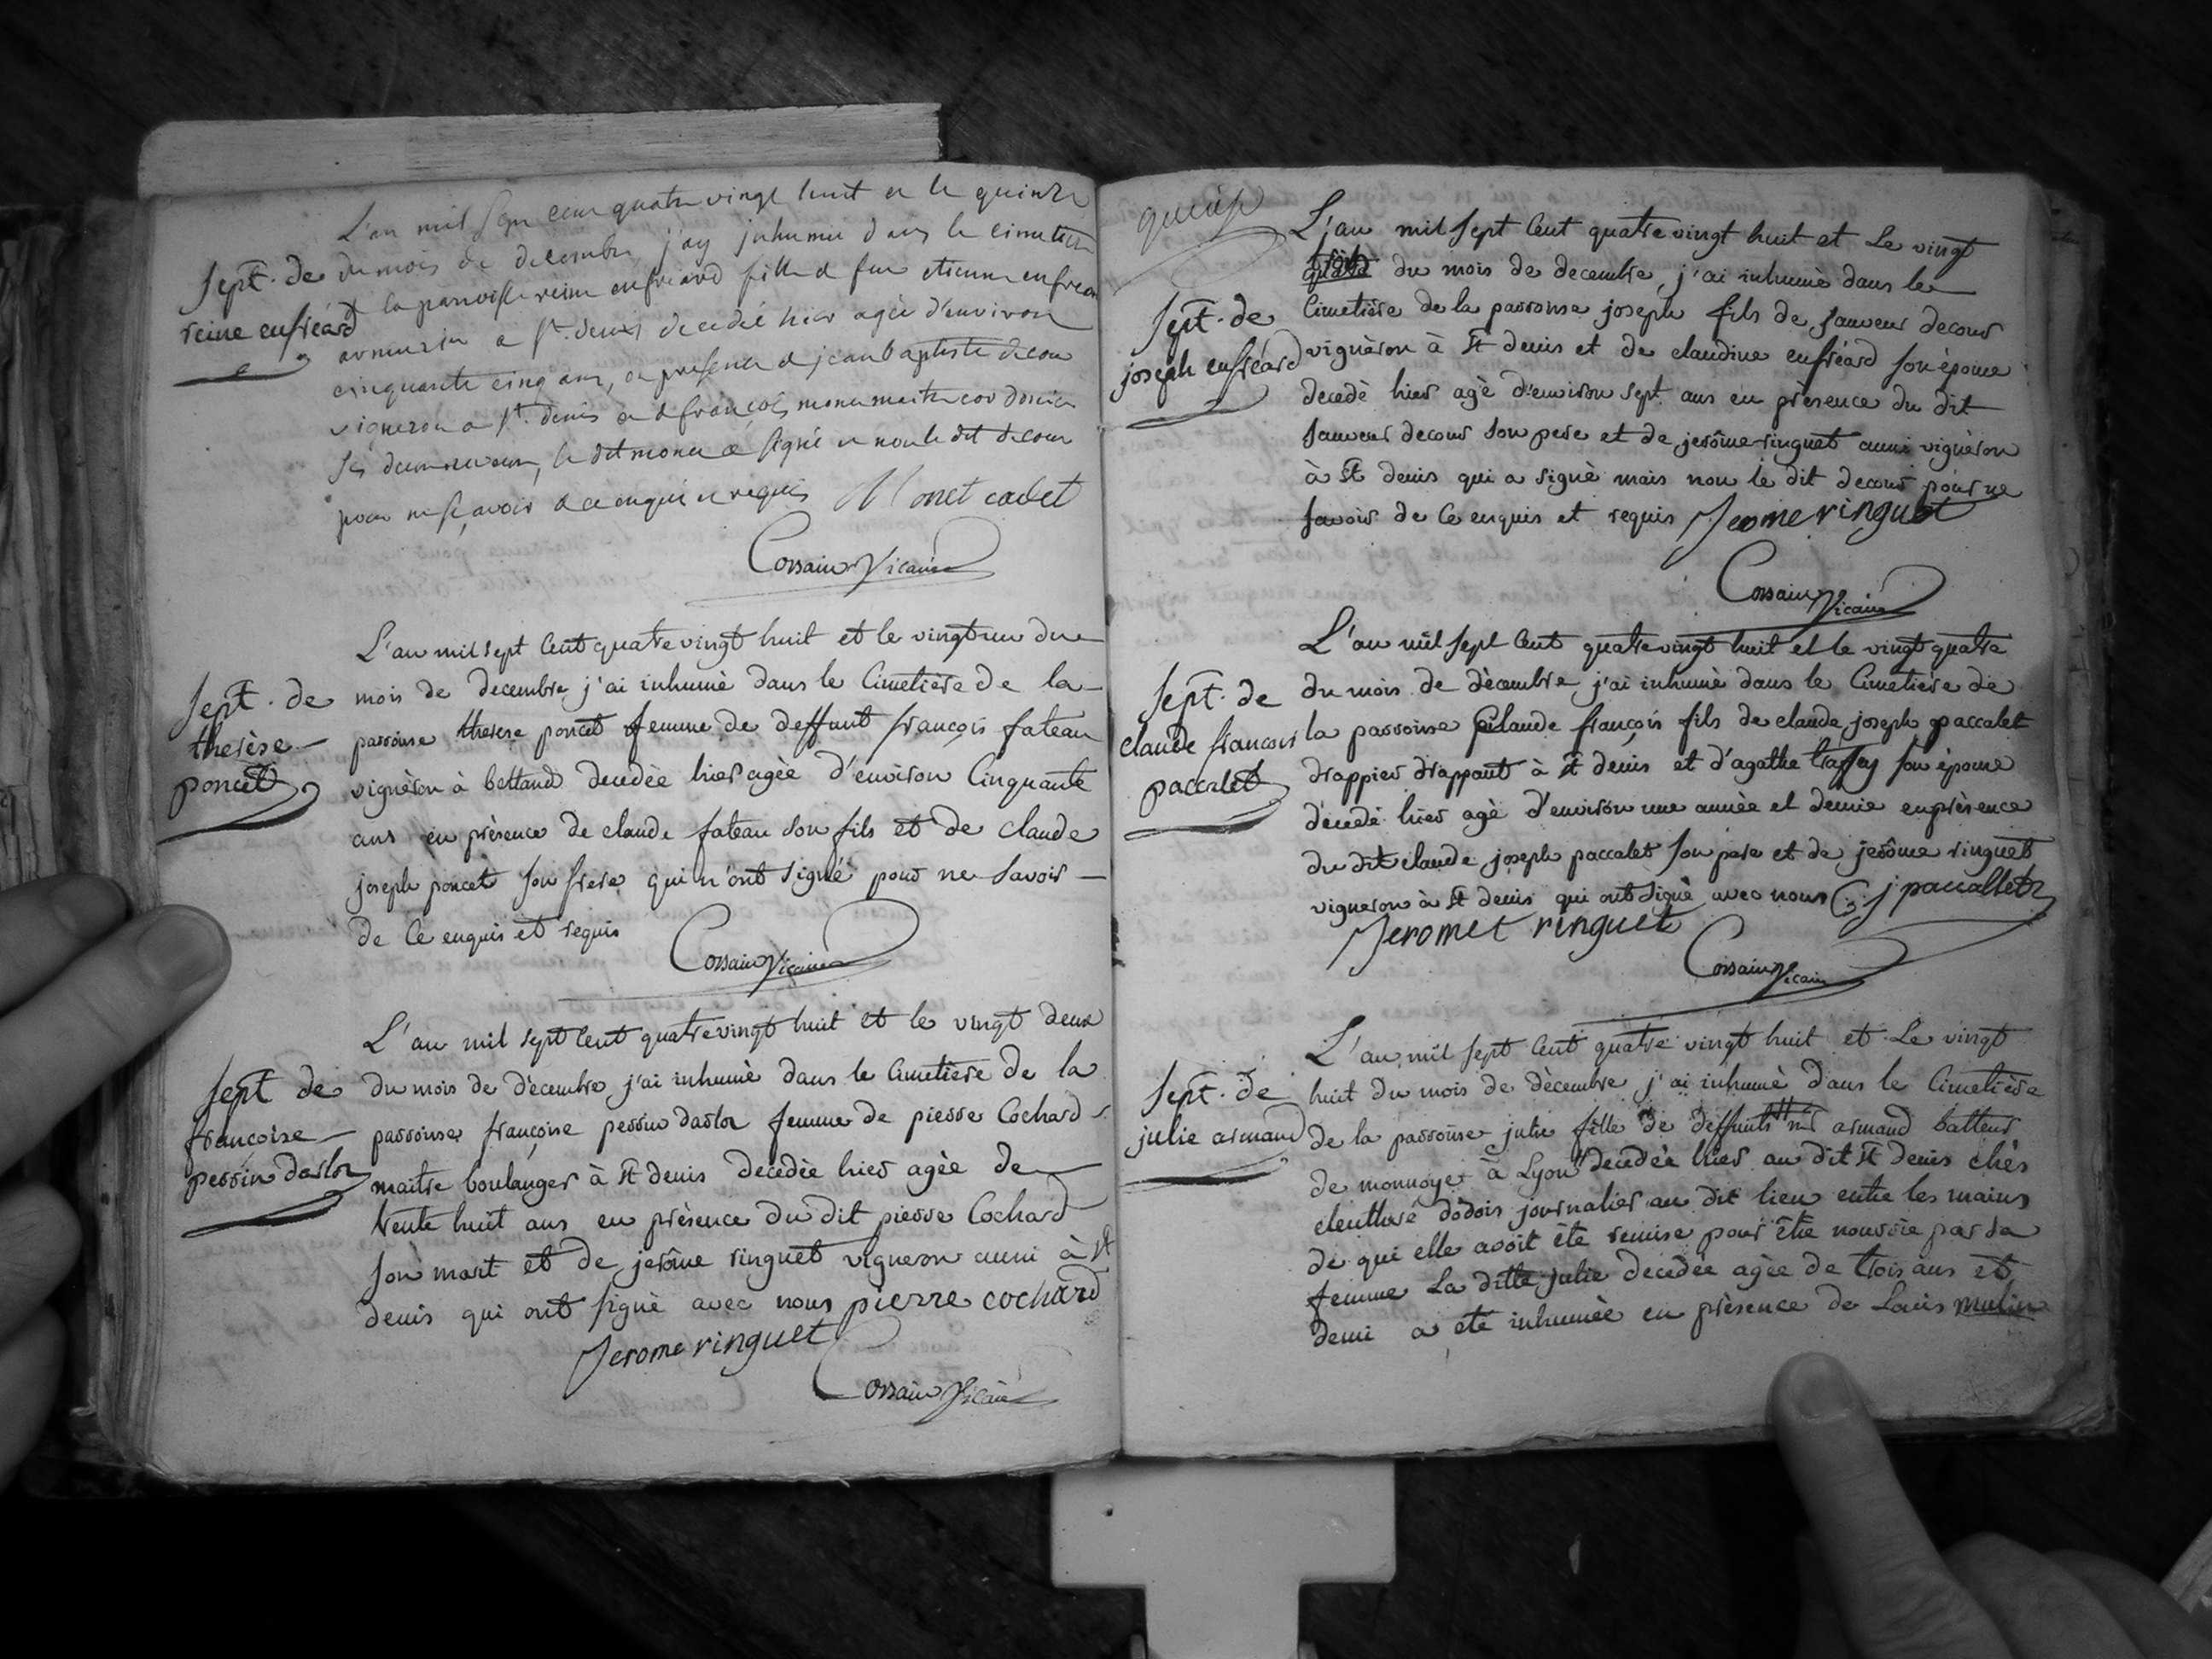 L'an mil sept cent quatre vingt huit et le quinze
Sept. de
reine enfréard
du mois de decembre j'ay inhumé dans le cimetiere
de la parroisse reine enfréard fille de feu etienne enfréard
a St. denis decedeé hier agée d'environ
cinquante cinq ans, en presence de jean baptiste decour
vigneron a St. denis et de françois monet maitre cordonier
le dit monet a signé et non le dit decour
pour ne sçavoir de ce enquis et requis Monet cadet
Corsain Vicaire
Sept. de
therèse
poncet
L'an mil sept Cent quatre vingt huit et le vingt un du
mois de decembre j'ai inhumè dans le Cimetière de la
parroisse therese poncet femme de deffunt françois fateau
vignèron à bettand decedèe hier agèe d'environ Cinquante
ans en prèsence de claude fateau son fils et de claude
joseph poncet son frere qui n'ont signé pour ne savoir
de Ce enquis et requis
Corsain Vicaire
Sept de
françoise
perrin darloz
L'an mil sept Cent quatre vingt huit et le vingt deux
du mois de dècembre j'ai inhumè dans le Cimetière de la
parroisse françoise perrin darloz femme de pierre Cochard
maitre boulanger à St denis decedèe hier agèe de
trente huit ans en prèsence du dit pierre Cochard
son mari et de jerôme ringuet vigneron aussi à St
denis qui ont signè avec nous pierre cochard
Jerome ringuet
Corsain Vicaire
L'an mil sept Cent quatre vingt huit et Le vingt
Sept. de
joseph enfréard
trois du mois de decembre, j'ai inhumè dans le
Cimetière de la parroisse joseph fils de sauveur decour
vignèron à St denis et de claudine enfréard son èpouse
decedè hier agè d'environ sept ans en prèsence du dit
sauveur decour son pere et de jerôme ringuet aussi vignèron
à St denis qui a signè mais non le dit decour pour ne
savoir de Ce enquis et requis Jerome ringuet
Corsain Vicaire
Sept. de
claude françois
paccalet
L'an mil sept Cent quatre vingt huit et le vingt quatre
du mois de dècembre j'ai inhumè dans le Cimetière de
la parroisse Claude françois fils de claude joseph paccalet
drappier drappant à St denis et d'agathe traffey son èpouse
dècedè hier agè d'environ une annèe et demie en prèsence
du dit claude joseph paccalet son pere et de jerôme ringuet
vigneron à St denis qui ont signè avec nous C j paccallet
Jeromet ringuet
Corsain Vicaire
Sept. de
julie armand
L'an mil sept Cent quatre vingt huit et Le vingt
huit du mois de dècembre j'ai inhumè dans le Cimetière
de la parroisse julie fille de deffunts armand batteur
de monnoye à Lyon decedèe hier au dit St denis chès
eleuthere dodois journalier au dit lieu entre les mains
de qui elle avoit ète remise pour ètre nourrie par sa
femme La ditte julie decedèe agèe de trois ans et
demi a ete inhumèe en prèsence de Louis mulin